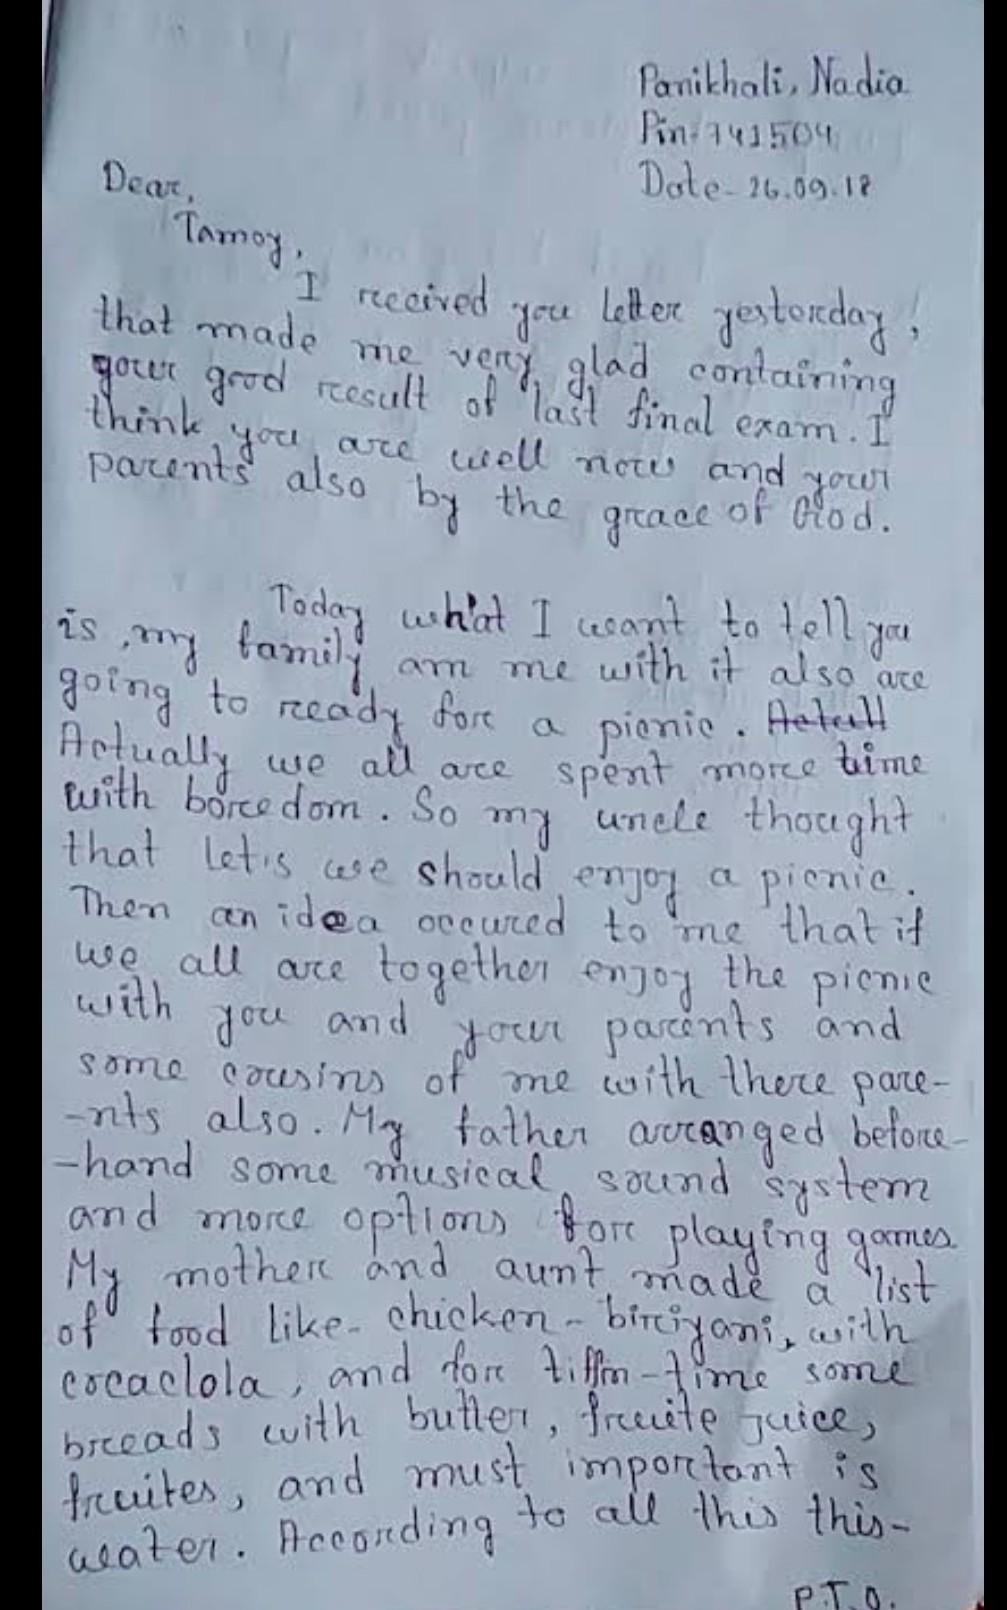 Panikhali, Nadia
Pin-741504
Date- 26.09.18
Dear,
Tamoy,
I received you letter yesterday,
that made me very glad containing
your good result of last final exam. I
think you are well now and your
parents also by the grace of God.
Today what I want to tell you
is, my family am me with it also are
going to ready for a picnic.
Actually we all are spent more time
with boredom. So my uncle thought
that let's we should enjoy a picnic.
Then an idea occured to me that if
we all are together enjoy the picnic
with you and your parents and
some cousins of me with there pare-
-nts also. My father arranged before-
-hand some musical sound system
and more options for playing games.
My mother and aunt made a list
of food like- chicken-biriyani, with
cocaclola, and for tiffin-time some
breads with butter, fruite juice,
fruites, and must important is
water. According to all this this-
P.T.O.